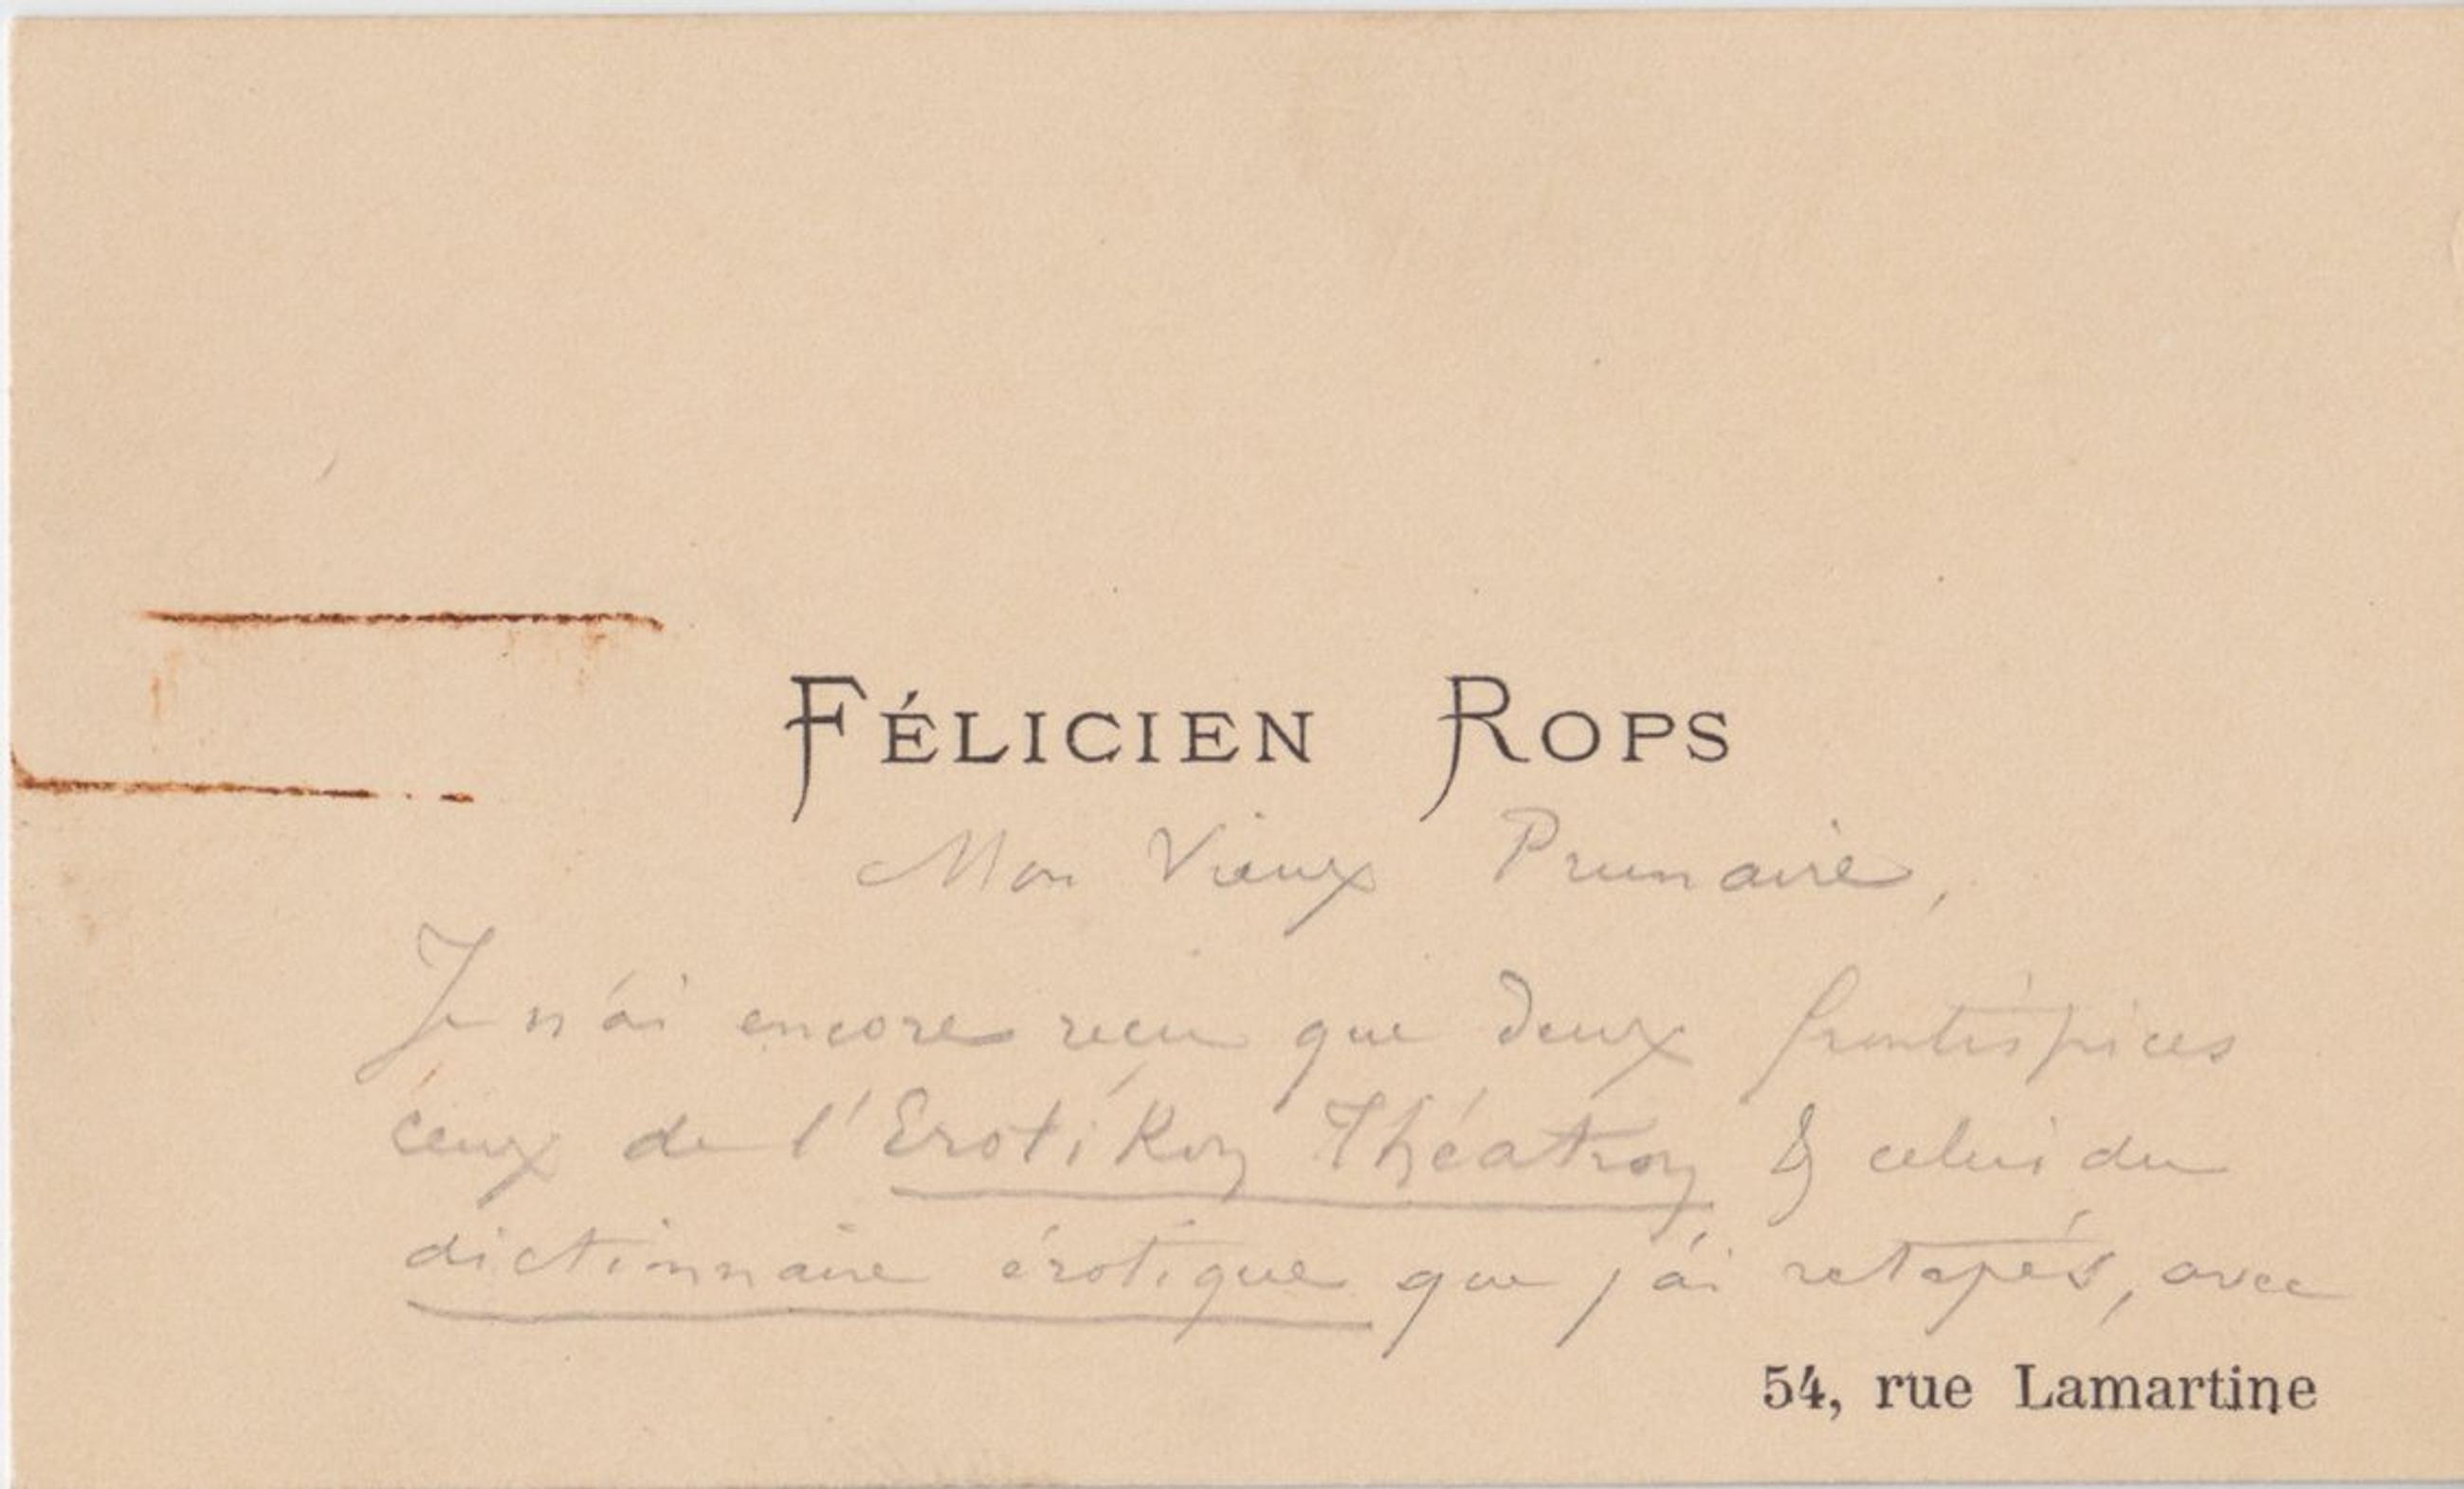 FÉLICIEN ROPS
Mon Vieux Prunaire,
Je n'ai encore reçu que deux frontispices
ceux de l'Erotikon Théatron & celui du
dictionnaire érotique que j'ai retapés, avec
54, rue Lamartine